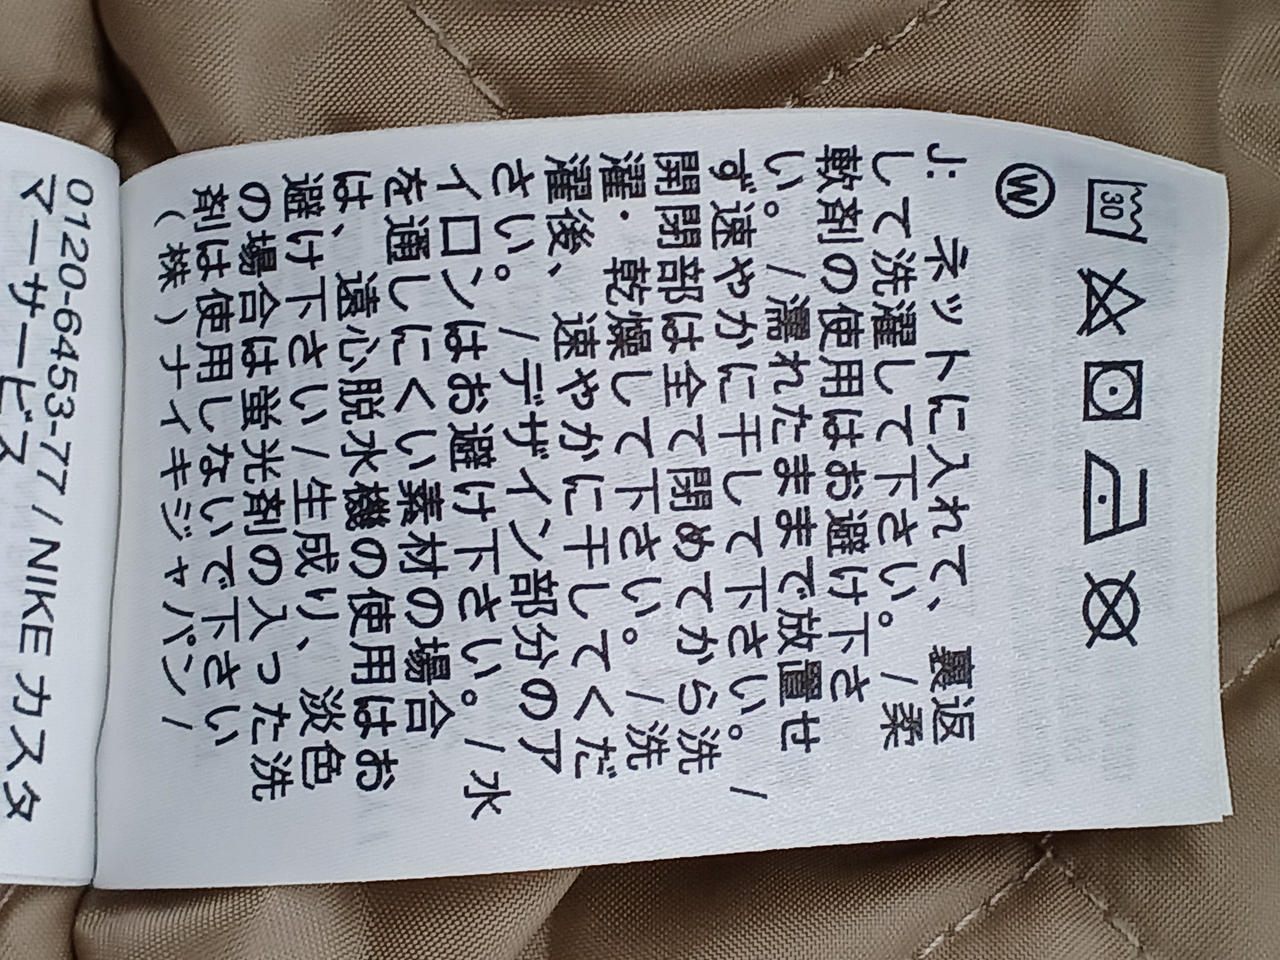 30
W
J: ネットに入れて、裏返
して洗濯して下さい。/柔
軟剤の使用はお避け下さ
い。/濡れたままで放置せ
ず速やかに干して下さい。/
開閉部は全て閉めてから洗
濯・乾燥して下さい。/洗
濯後、速やかに干してくだ
さい。/デザイン部分のア
イロンはお避け下さい。/水
を通しにくい素材の場合
は、遠心脱水機の使用はお
避け下さい/生成り、淡色
の場合は蛍光剤の入った洗
剤は使用しないで下さい
(株)ナイキジャパン/
0120-6453-77 / NIKE カスタ
マーサービス